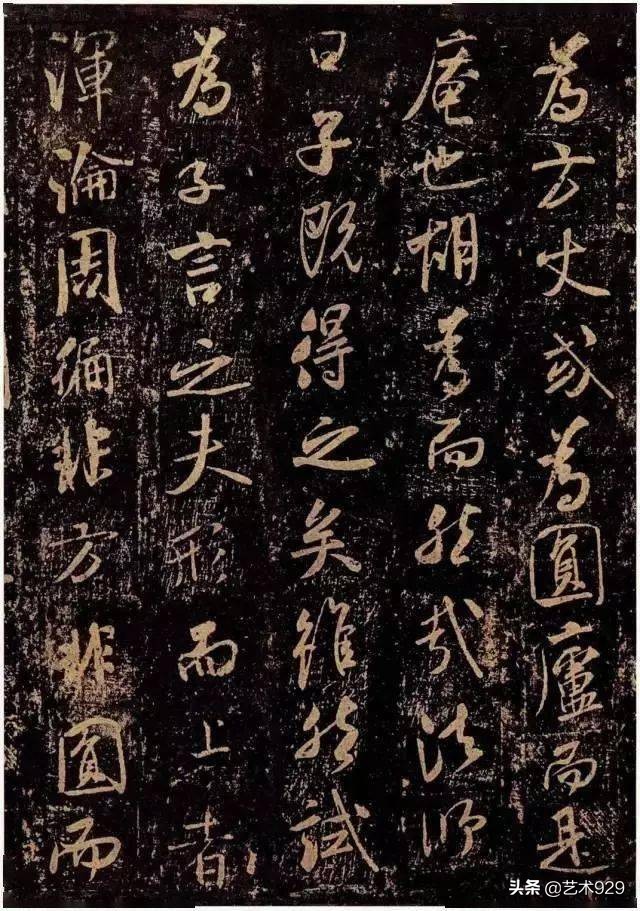 為方丈或為圓廬而是
庵也胡為而然哉法師
曰子既得之矣雖然試
為子言之夫形而上者
渾淪周徧非方非圓而
头条 @艺术929